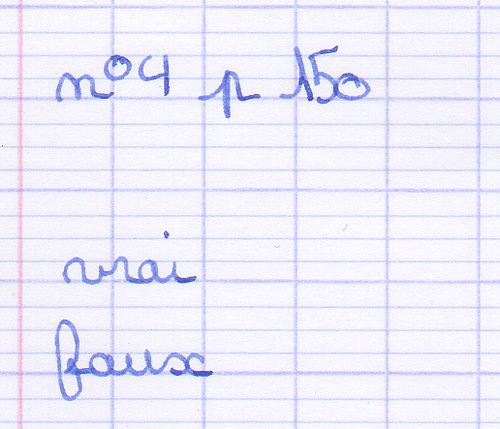 n°4 p 150
vrai
faux